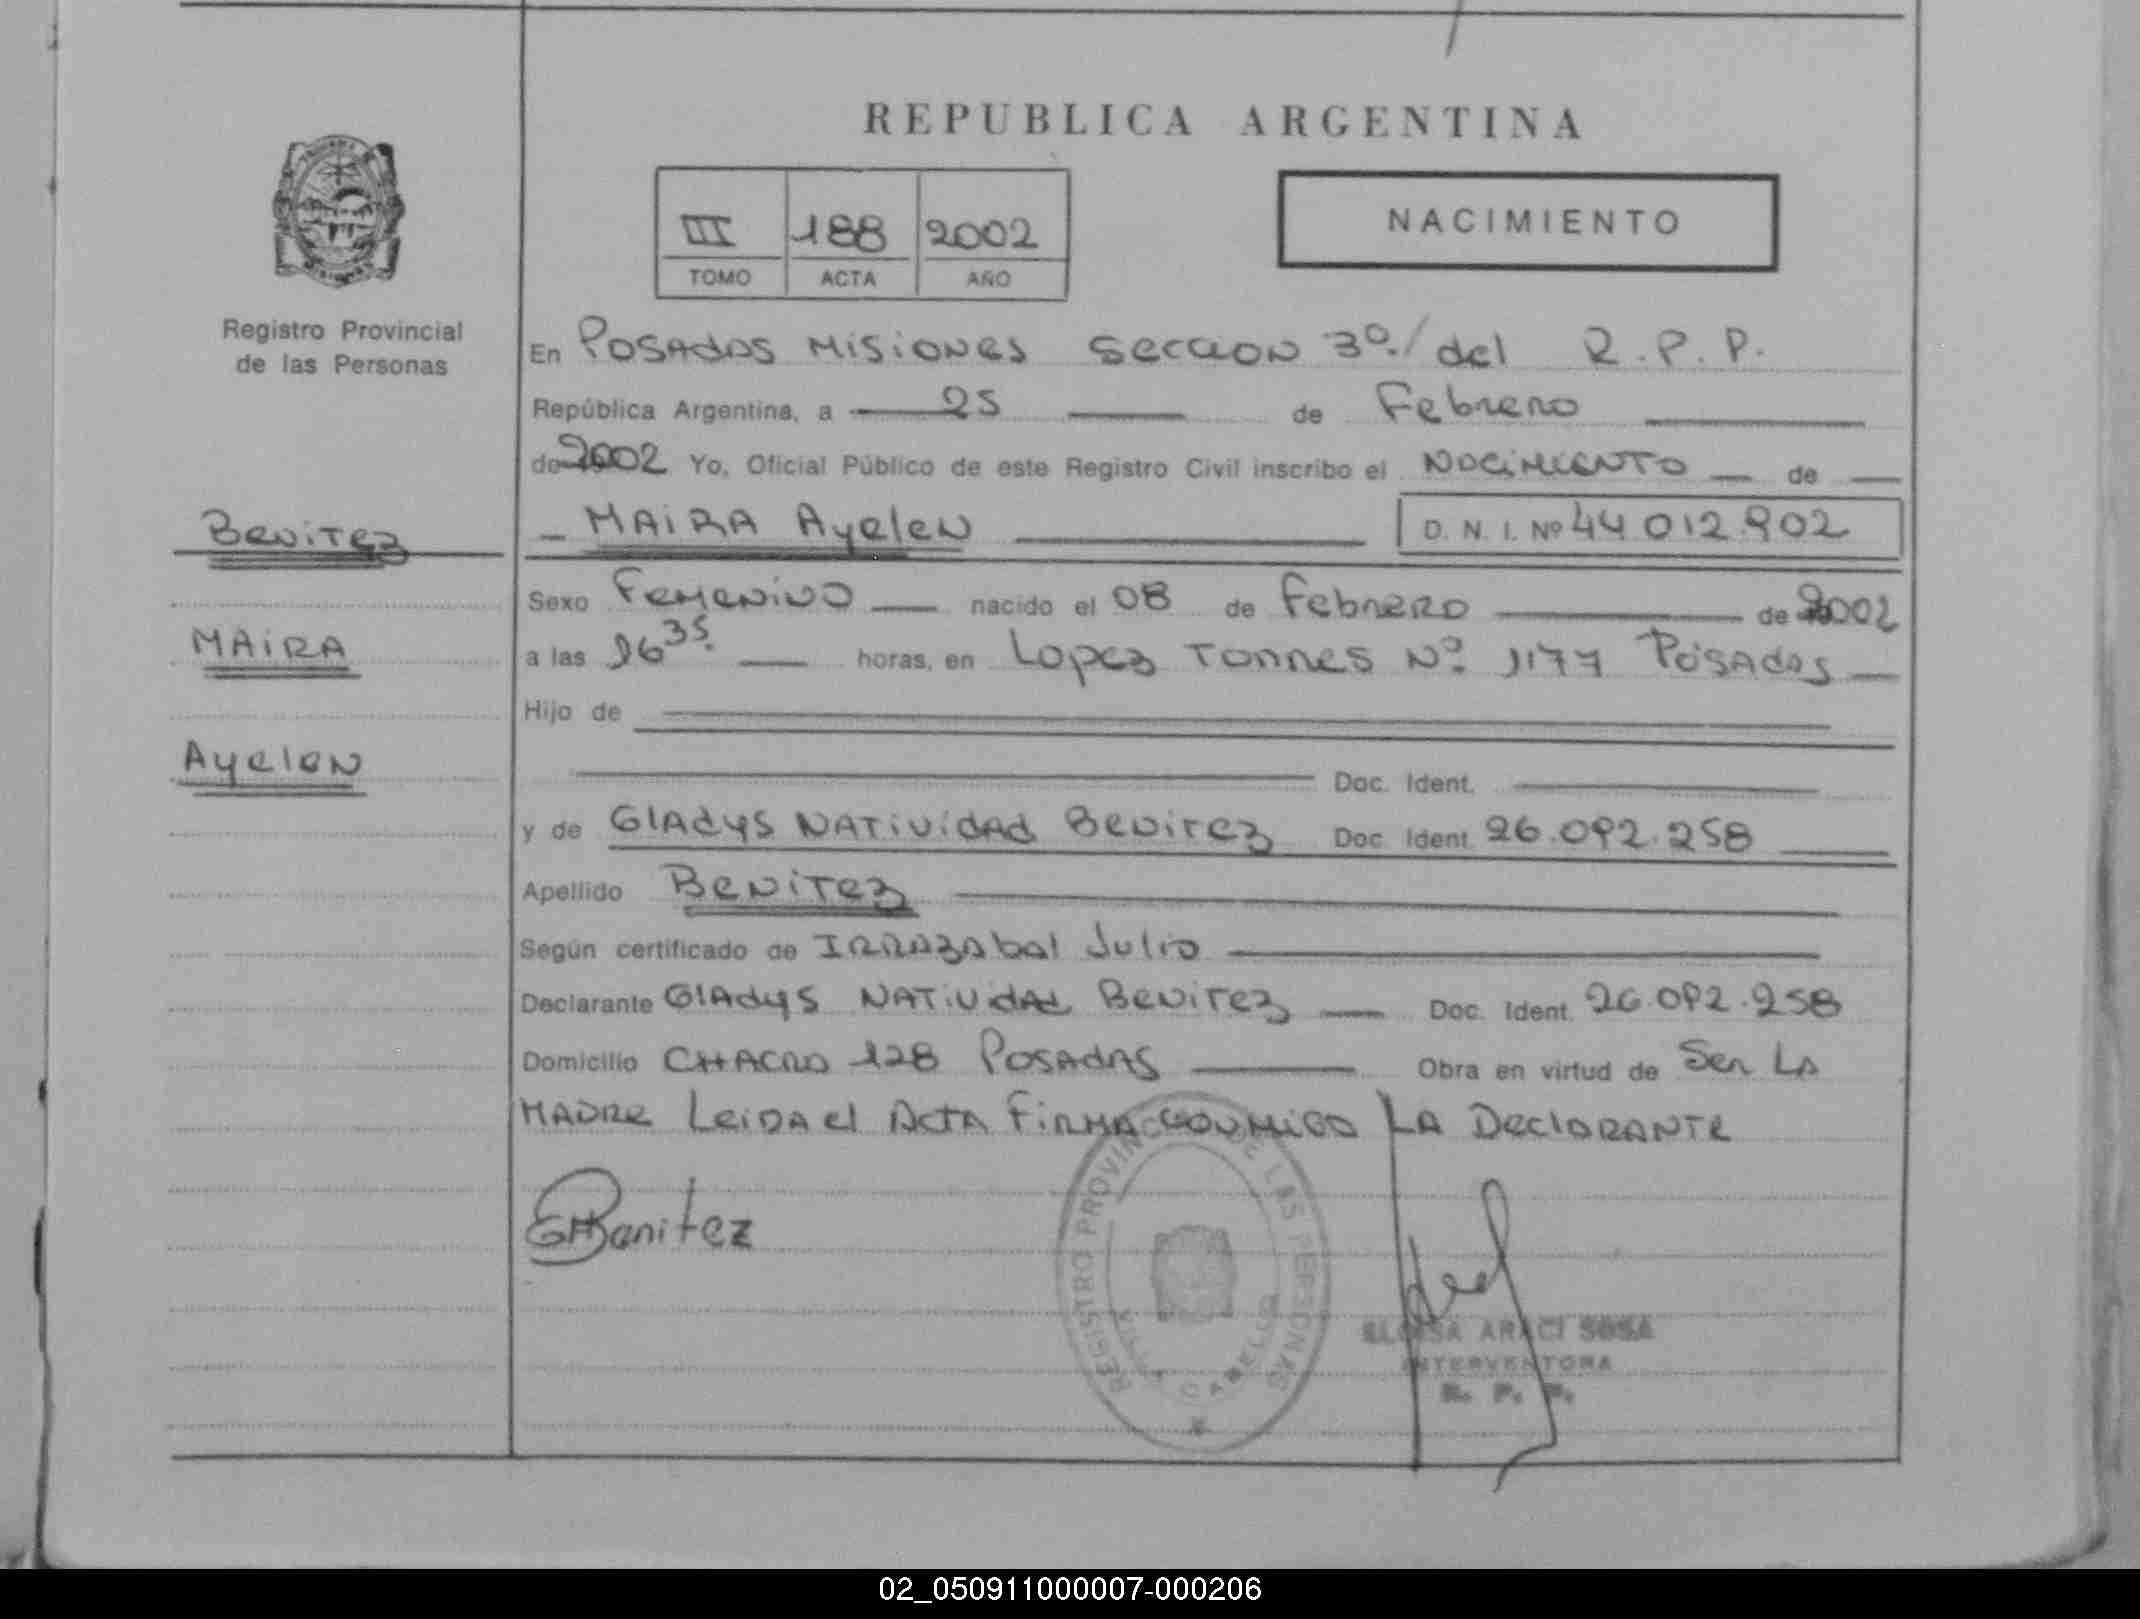 REPUBLICA ARGENTINA
III 188 2002
TOMO ACTA AÑO
NACIMIENTO
Registro Provincial
de las Personas
En Posadas Misiones Seccion 3º/ del R.P.P.
República Argentina, a 25 de Febrero
de 2002 Yo, Oficial Público de este Registro Civil inscribo el Nacimiento de
Benitez
MAIRA Ayelen D. N. I. Nº 44 012.902
Sexo Femenino nacido el 08 de Febrero de 2002
MAIRA
a las 16 35. horas, en Lopez Torres Nº 1177 Posadas
Hijo de
Ayelen
Doc. Ident.
y de Gladys Natividad Benitez Doc. Ident. 26.092.258
Apellido Benitez
Según certificado de Irrazabal Julio
Declarante Gladys Natividad Benitez Doc. Ident. 26.092.258
Domicilio CHACRA 128 Posadas Obra en virtud de Ser LA
MADRE Leida el Acta Firma conmigo LA Declarante
GNBenitez
REGISTRO PROVINCIAL DE LAS PERSONAS
VILLA CABELLO
ELOISA ARACI SOSA
INTERVENTORA
R. P. P.
02_050911000007-000206